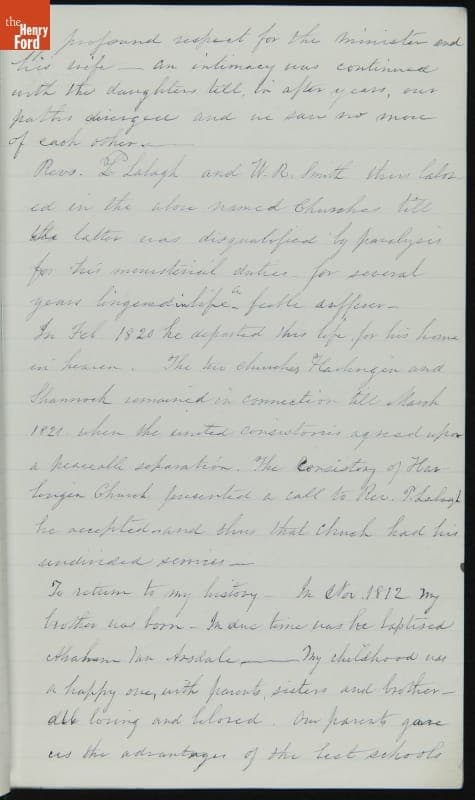 the
Henry
Ford
profound respect for the minister and
his wife — an intimacy was continued
with the daughters till, in after years, our
paths diverged and we saw no more
of each other. —
Revs. P Labagh and W. R. Smith thus labor
ed in the above named Churches till
the latter was disqualified by paralysis
for his ministerial duties for several
years lingered in life a feeble sufferer —
In Feb 1820 he departed this life for his home
in heaven. The two churches Harlingen and
Shannock remained in connection till March
1821 when the united consistories agreed upon
a peaceable separation. The Consistory of Har
lingen Church presented a call to Rev. P. Labagh
he accepted and thus that Church had his
undivided services —
To return to my history — In Nov. 1812 My
brother was born — In due time was he baptised
Abraham Van Arsdale — My childhood was
a happy one, with parents, sisters and brother —
all loving and beloved. Our parents gave
us the advantages of the best schools